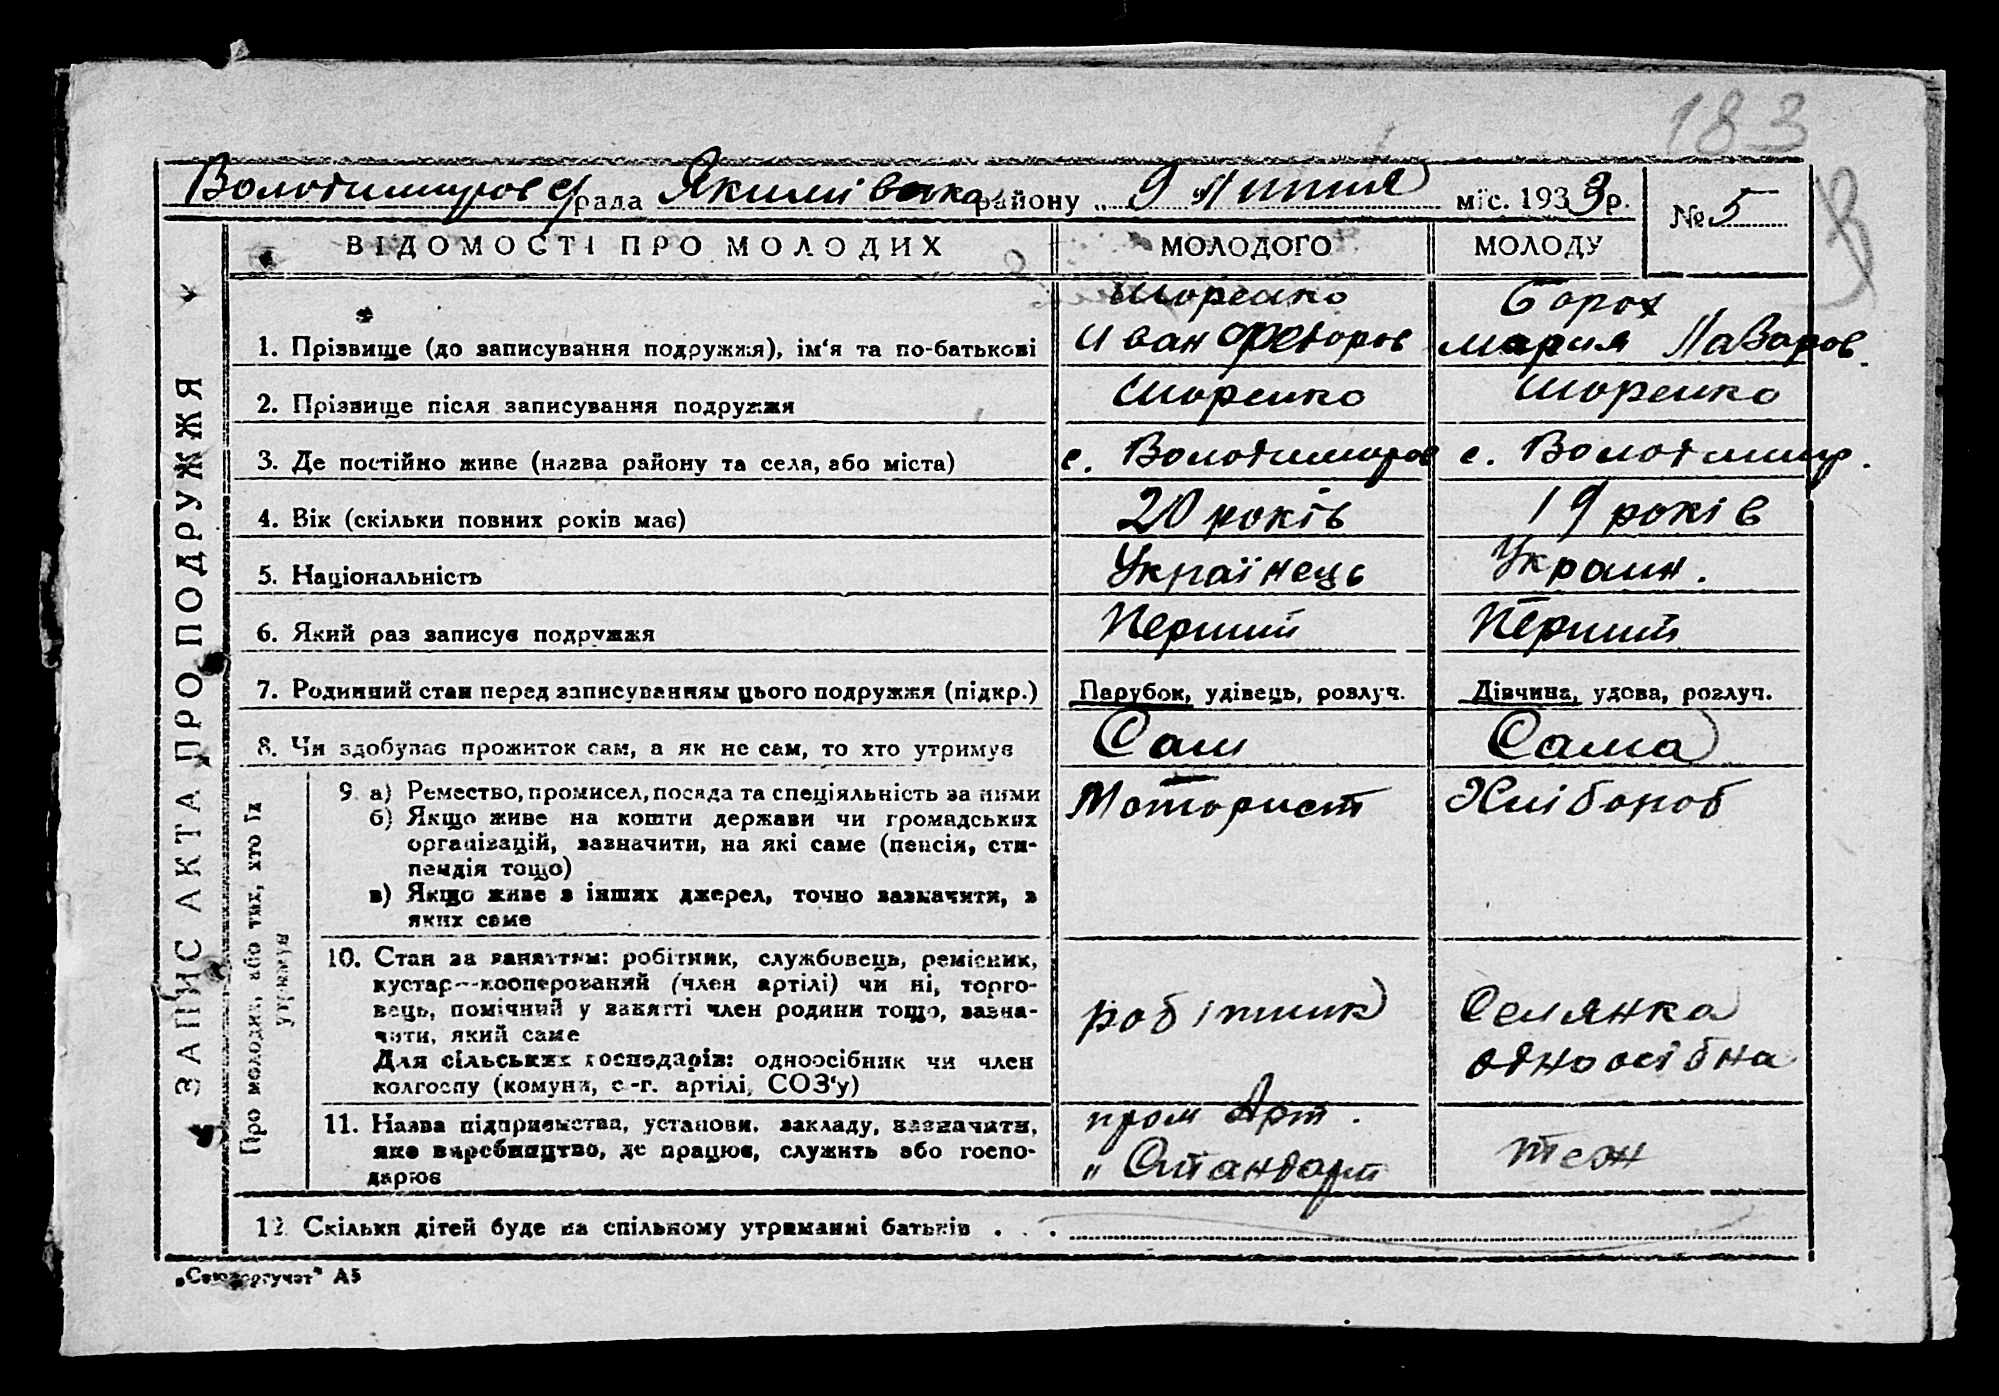 183
Володимиров с/рада Якимівська району „ 9 " Липня міс. 1933 р. № 5
ВІДОМОСТІ ПРО МОЛОДИХ МОЛОДОГО МОЛОДУ
ЗАПИС АКТА ПРО ПОДРУЖЖЯ
1. Прізвище (до записування подружжя), ім'я та по-батькові
Иван Федоров
Мария
2. Прізвище після записування подружжя
3. Де постійно живе (назва району та села, або міста) с. Володимиров с. Володимир.
4. Вік (скільки повних років має) 20 років 19 років
5. Національність Українець Украин.
6. Який раз записує подружжя Перший Перший
7. Родинний стан перед записуванням цього подружжя (підкр.) Парубок, удівець, розлуч. Дівчина, удова, розлуч.
8. Чи здобуває прожиток сам, а як не сам, то хто утримує Сам Сама
Про молодих, або тих, хто їх
утримує
9. а) Ремество, промисел, посада та спеціяльність за ними Моторист Хлібороб
б) Якщо живе на кошти держави чи громадських
організацій, зазначити, на які саме (пенсія, сти-
пендія тощо)
в) Якщо живе з інших джерел, точно зазначити, з
яких саме
10. Стан за заняттям: робітник, службовець, ремісник,
кустар—кооперований (член артілі) чи ні, торго-
вець, помічний у занятті член родини тощо, зазна-
чити, який саме
Для сільських господарів: одноосібник чи член
колгоспу (комуни, с.-г. артілі, СОЗ'у)
робітник
Селянка
одноосібна
11. Назва підприємства, установи, закладу, зазначити,
яке виробництво, де працює, служить або госпо-
дарює
пром Арт.
„ Стандарт
теж
12. Скільки дітей буде на спільному утриманні батьків . . .
„Союзоргучет" А5